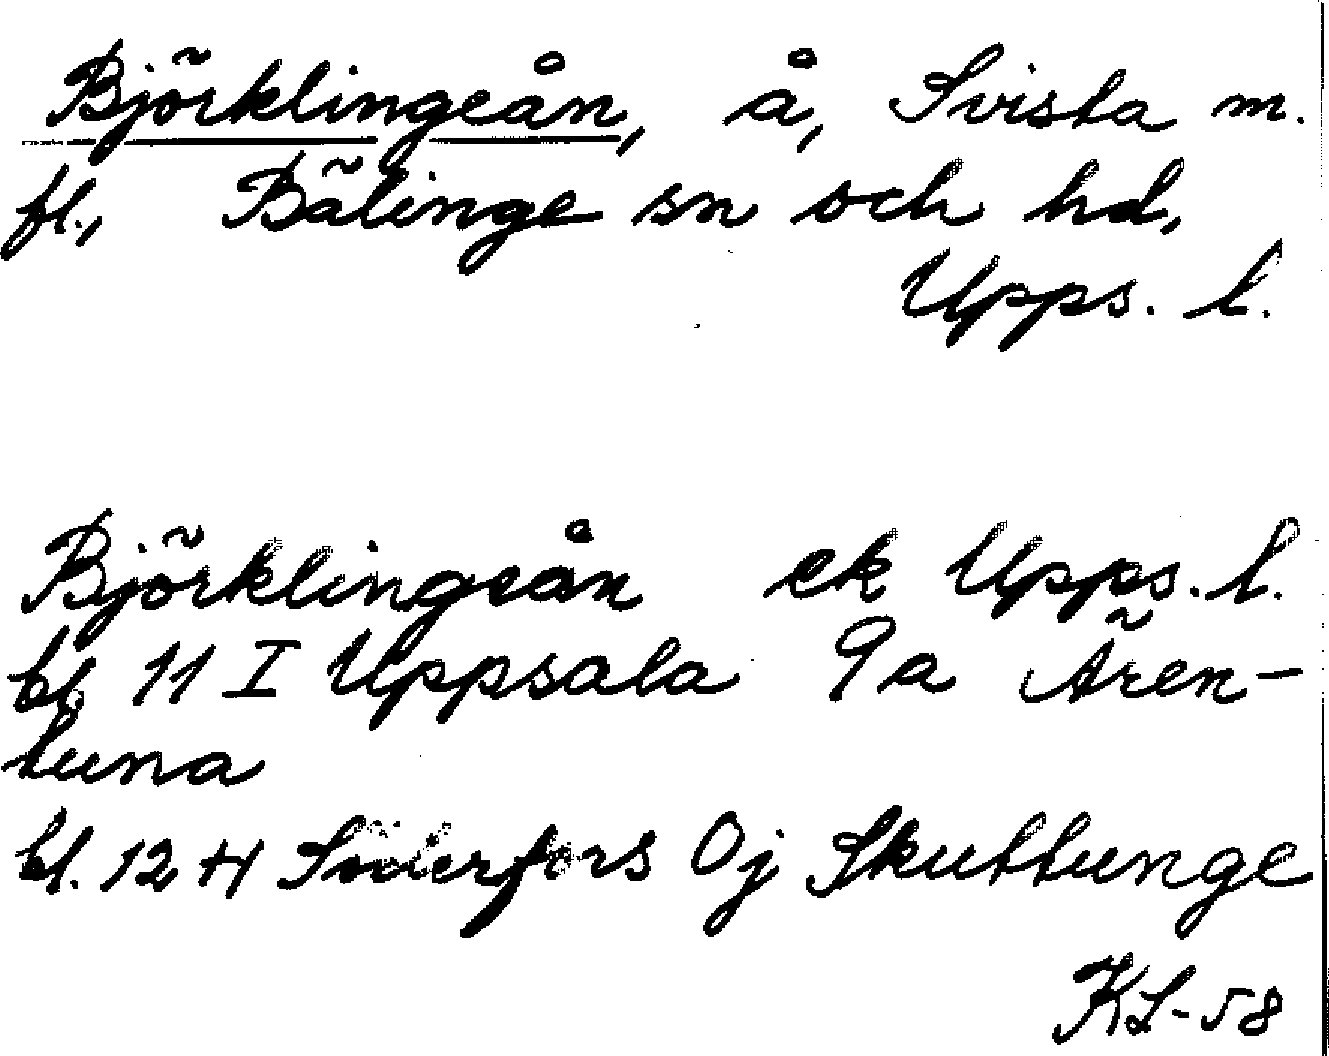 Björklingeån, å, Svista m.
fl., Bälinge sn och hd,
Upps. l.
Björklingeån ek Upps. l.
bl 11 I Uppsala 9a Ären-
tuna
bl. 12 H Söderfors 0j Skuttunge
KL-58